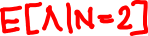 E[Λ|N=2]